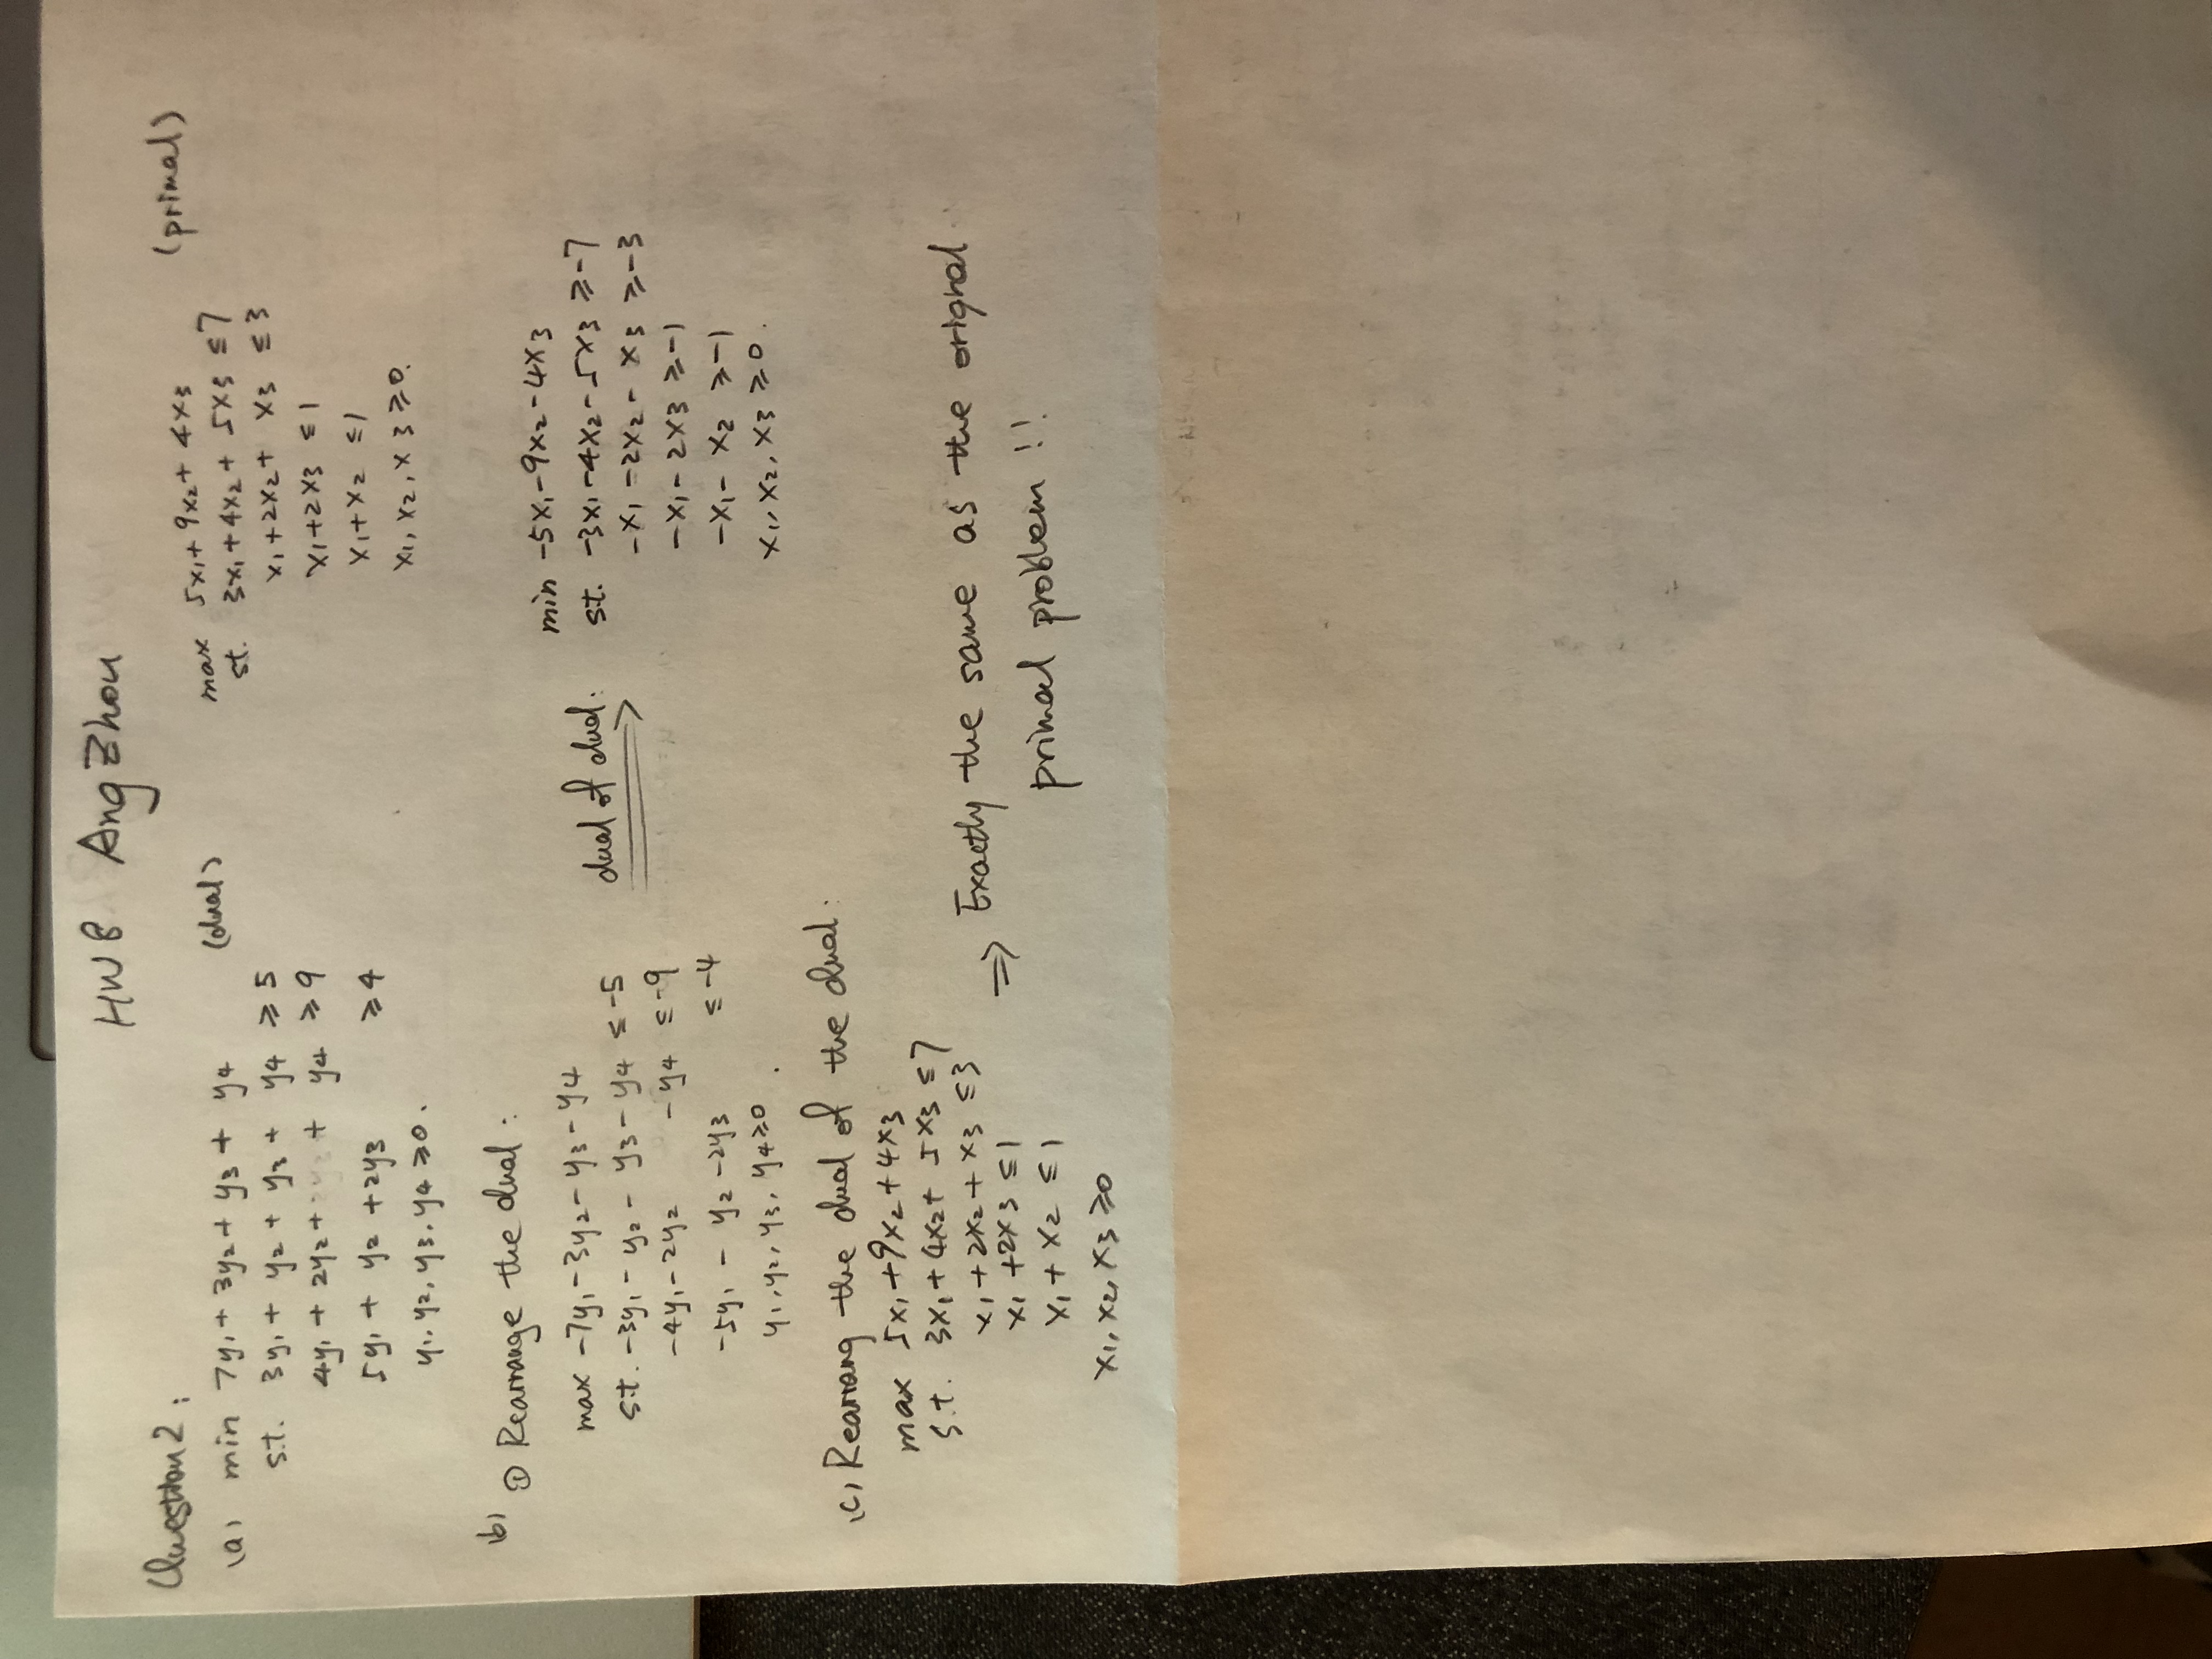 HW8 Ang Zhou
Question 2:
(a) min 7y₁ + 3y₂ + y₃ + y₄ (dual)
s.t. 3y₁ + y₂ + y₃ + y₄ ≥ 5
4y₁ + 2y₂ + + y₄ ≥ 9
5y₁ + y₂ + 2y₃ ≥ 4
y₁, y₂, y₃, y₄ ≥ 0.
(primal)
max 5x₁ + 9x₂ + 4x₃
st. 3x₁ + 4x₂ + 5x₃ ≤ 7
x₁ + 2x₂ + x₃ ≤ 3
x₁ + 2x₃ ≤ 1
x₁ + x₂ ≤ 1
x₁, x₂, x₃ ≥ 0.
(b) ① Rearrange the dual:
max -7y₁ - 3y₂ - y₃ - y₄
s.t. -3y₁ - y₂ - y₃ - y₄ ≤ -5
-4y₁ - 2y₂ - y₄ ≤ -9
-5y₁ - y₂ - 2y₃ ≤ -4
y₁, y₂, y₃, y₄ ≥ 0.
dual of dual: ⟹
min -5x₁ - 9x₂ - 4x₃
st. -3x₁ - 4x₂ - 5x₃ ≥ -7
-x₁ - 2x₂ - x₃ ≥ -3
-x₁ - 2x₃ ≥ -1
-x₁ - x₂ ≥ -1
x₁, x₂, x₃ ≥ 0.
(c) Rearrang the dual of the dual:
max 5x₁ + 9x₂ + 4x₃
s.t. 3x₁ + 4x₂ + 5x₃ ≤ 7
x₁ + 2x₂ + x₃ ≤ 3
x₁ + 2x₃ ≤ 1
x₁ + x₂ ≤ 1
x₁, x₂, x₃ ≥ 0
⇒ Exactly the same as the orignal
primal problem !!